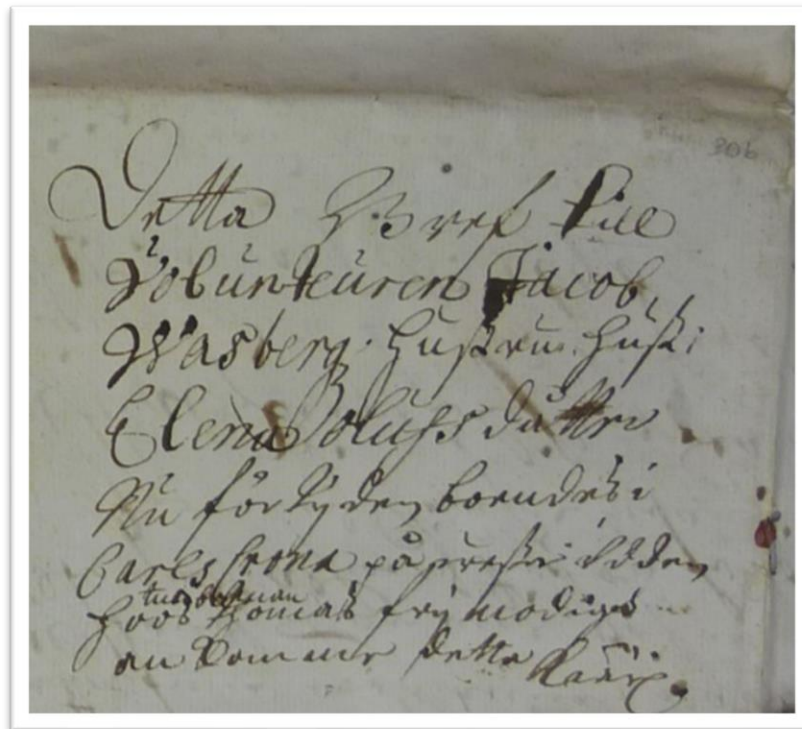 306
Detta Bref till
Volunteuren Jacob
Wasberg hustru hust:
Elena olufsdotter
Nu för tyden boendes i
Carlscrona på
hoos Thomas frymodiges
an komme dette